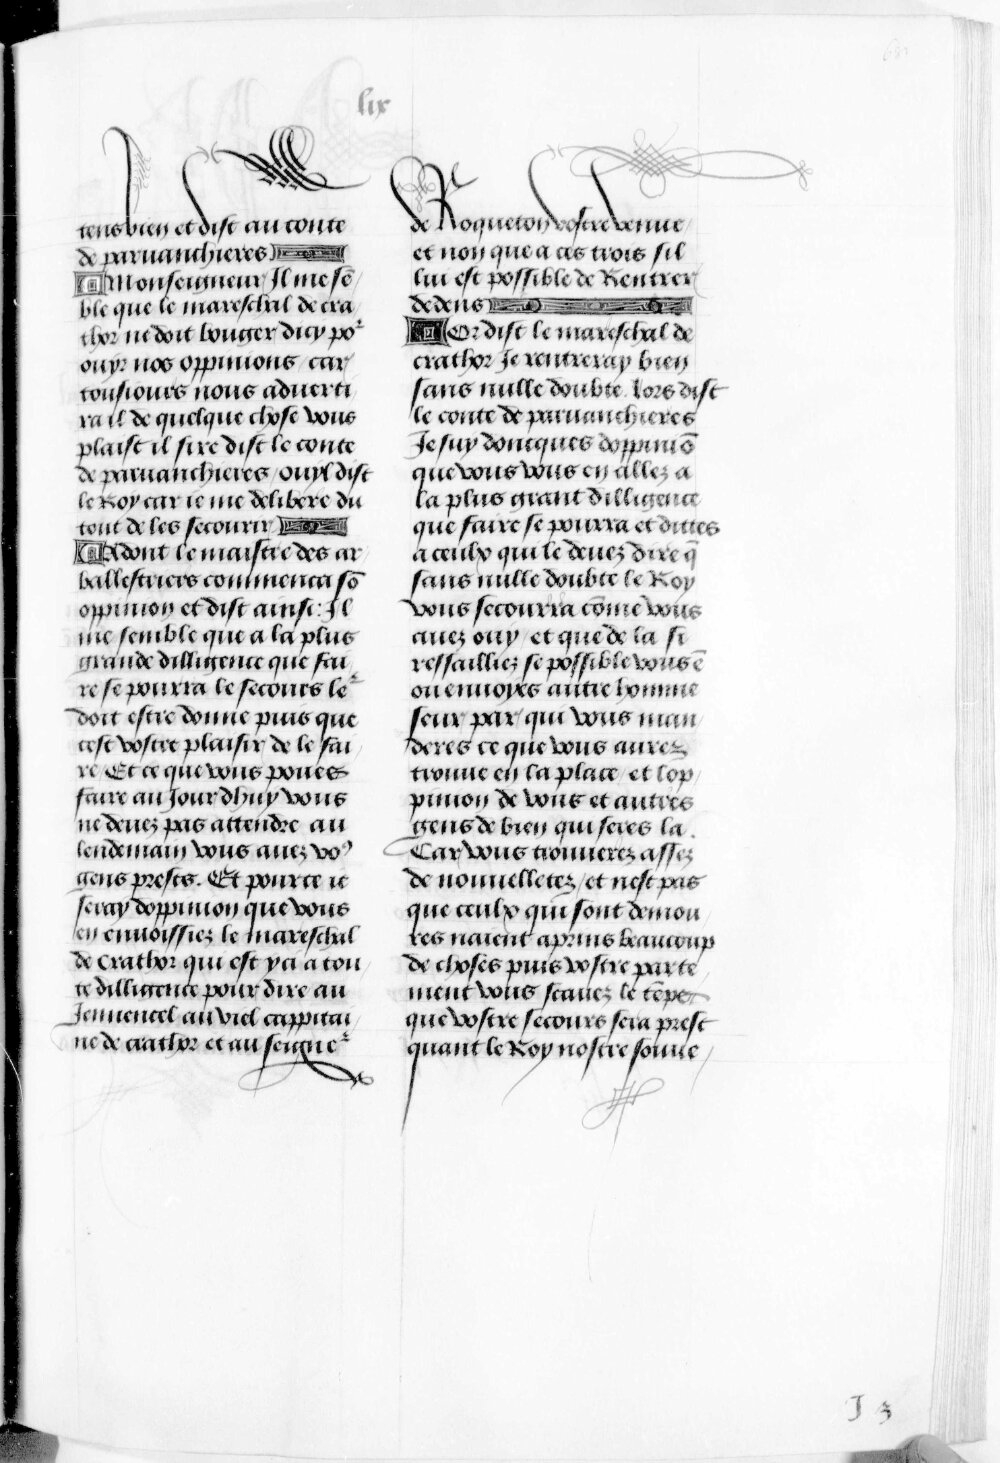 lix
tens bien et dist au conte
de paruanchieres
Monseigneur Il me sē
ble que le mareschal de cra
thor ne doit bouger dicy po
ouyr nos oppinions / car
tousiours nous aduerti
ra il de quelque chose vous
plaist il sire dist le conte
de paruanchieres / ouyl dist
le Roy car ie me delibere du
tout de les secourir
Adont le maistre des ar
ballestriers commenca sō
oppinion et dist ainsi: Il
me semble que a la plus
grande dilligence que fai
re se pourra le secours le
doit estre donne puis que
cest vostre plaisir de le fai
re / Et ce que vous poues
faire au Jour dhuy vous
ne deuez pas attendre au
lendemain vous auez voꝰ
gens prests. Et pource ie
seray doppinion que vous
en enuoissiez le mareschal
de Crathor qui est yci a tou
te dilligence pour dire au
Jennencel au viel cappitai
ne de crathor et au seigne
de Roqueton vostre venue
et non que a ces trois sil
lui est possible de Rentrer
dedens
Or dist le mareschal de
crathor Je rentreray bien
sans nulle doubte. lors dist
le conte de paruanchieres
Je suy doncques doppiniō
que vous vous en allez a
la plus grant dilligence
que faire se pourra et dittes
a ceulx qui le deuez dire q̄
sans nulle doubte le Roy
vous secourra cōme vous
auez ouy / et que de la si
ressailliez se possible vous ē
ou enuoyes autre homme
seur par qui vous man
deres ce que vous aurez
trouue en la place / et lop
pinion de vous et autres
gens de bien qui seres la.
Car vous trouuerez assez
de nouuelletez / et nest pas
que ceulx qui sont demou
res naient aprins beaucoup
de choses puis vostre parte
ment vous scauez le tēps
que vostre secours sera prest
quant le Roy nostre souue
J 3